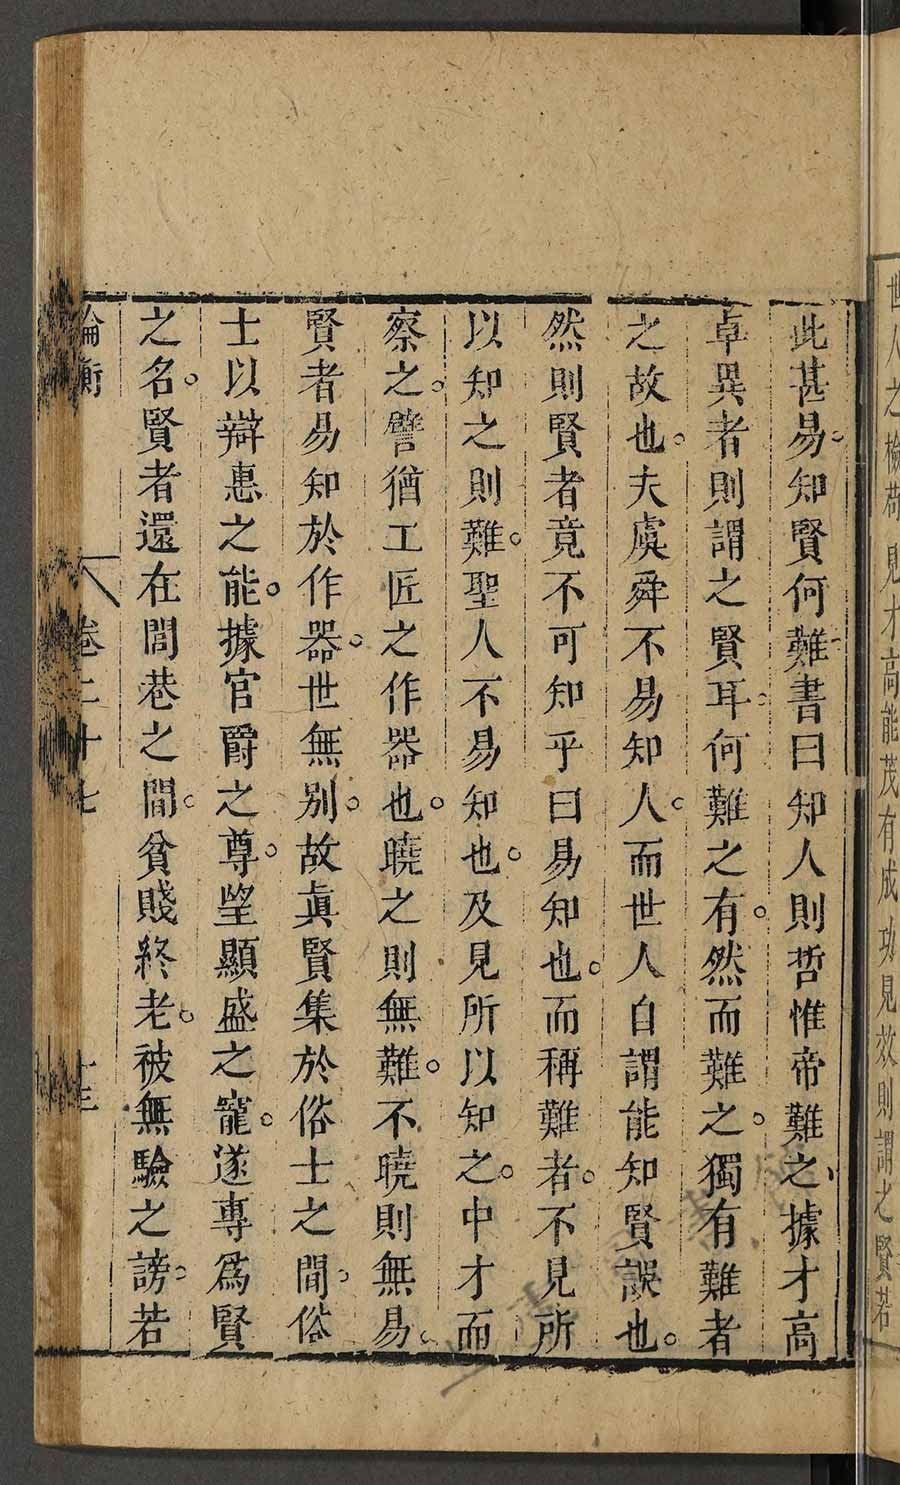 世人之檢苟見才高能茂有成功見效則謂之賢若
此甚易知賢何難書曰知人則哲惟帝難之據才高
卓異者則謂之賢耳何難之有然而難之獨有難者
之故也夫虞舜不易知人而世人自謂能知賢誤也
然則賢者竟不可知乎曰易知也而稱難者不見所
以知之則難聖人不易知也及見所以知之中才而
察之譬猶工匠之作器也曉之則無難不曉則無易
賢者易知於作器世無别故眞賢集於俗士之間俗
士以辯惠之能據官爵之尊望顯盛之寵遂專爲賢
之名賢者還在閭巷之間貧賤終老被無驗之謗若
論衡 卷二十七